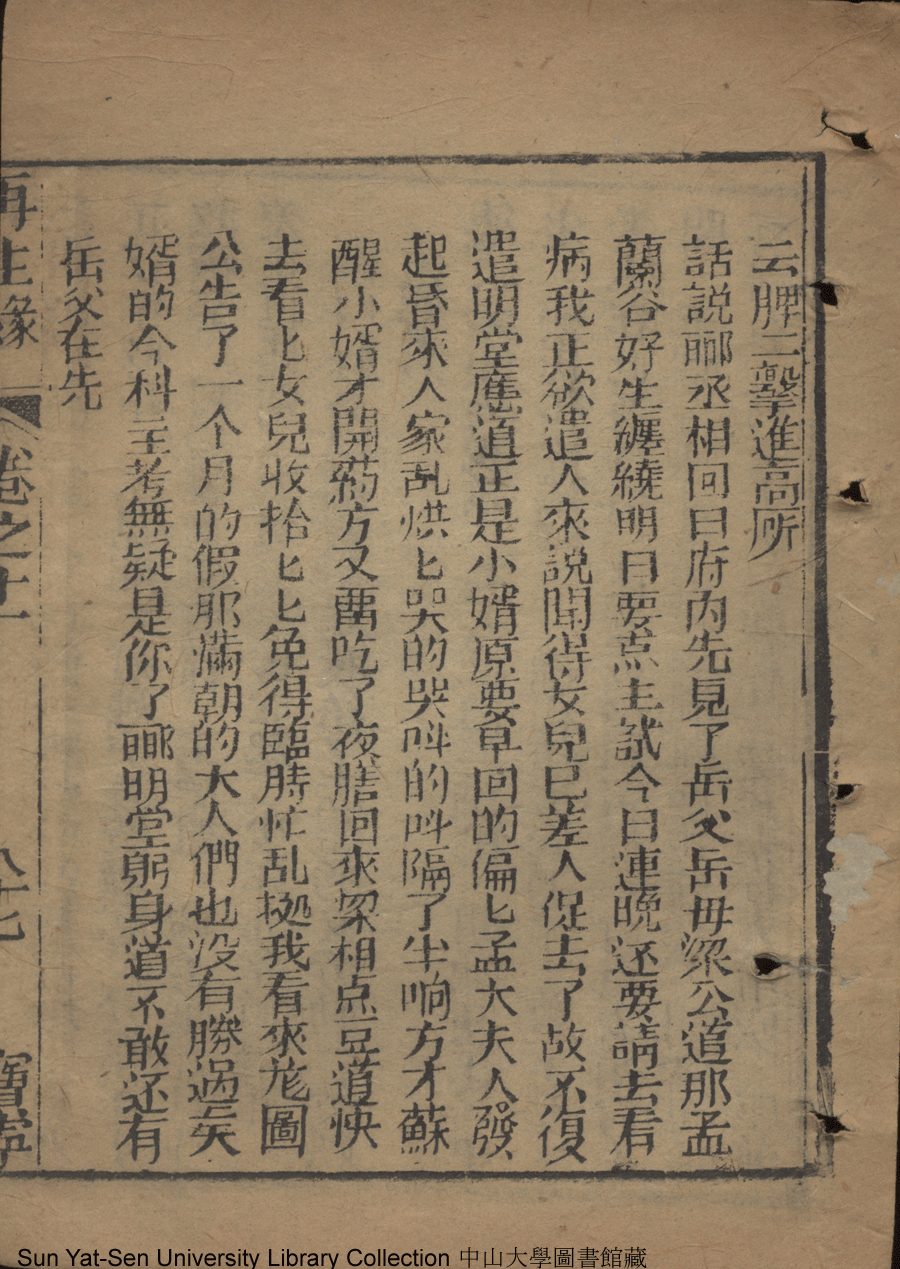 云脾二擊進高所
話説酈丞相回曰府内先見了岳父岳母梁公道那孟
蘭谷好生纏繞明日要点主試今日連晚还要請去看
病我正欲遣人來説聞得女兒已差人促去了故不復
遣明堂應道正是小婿原要早回的偏匕孟太夫人發
起昏來人家乱烘匕哭的哭呌的呌隔了半响方才蘇
醒小婿才開葯方又畱吃了夜膳回來梁相点豆道快
去看匕女兒收拾匕匕免得臨時忙乱拠我看來龙圖
公告了一个月的假那滿朝的大人們也没有勝過矣
婿的今科主考無疑是你了酈明堂躬身道不敢还有
岳父在先
再生緣 卷之十一 八十七 寶寧
Sun Yat-Sen University Library Collection 中山大學圖書館藏